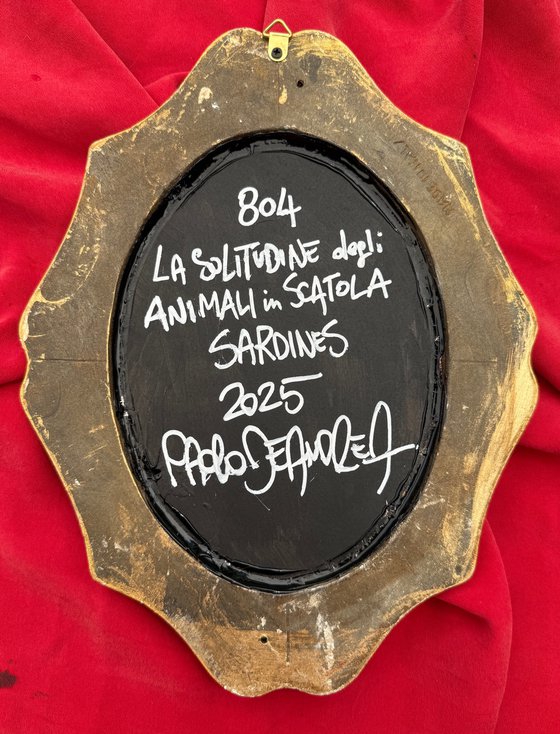 804
LA SOLITUDINE degli
ANIMALI in SCATOLA
SARDINES
2025
PAOLO DEANDREA